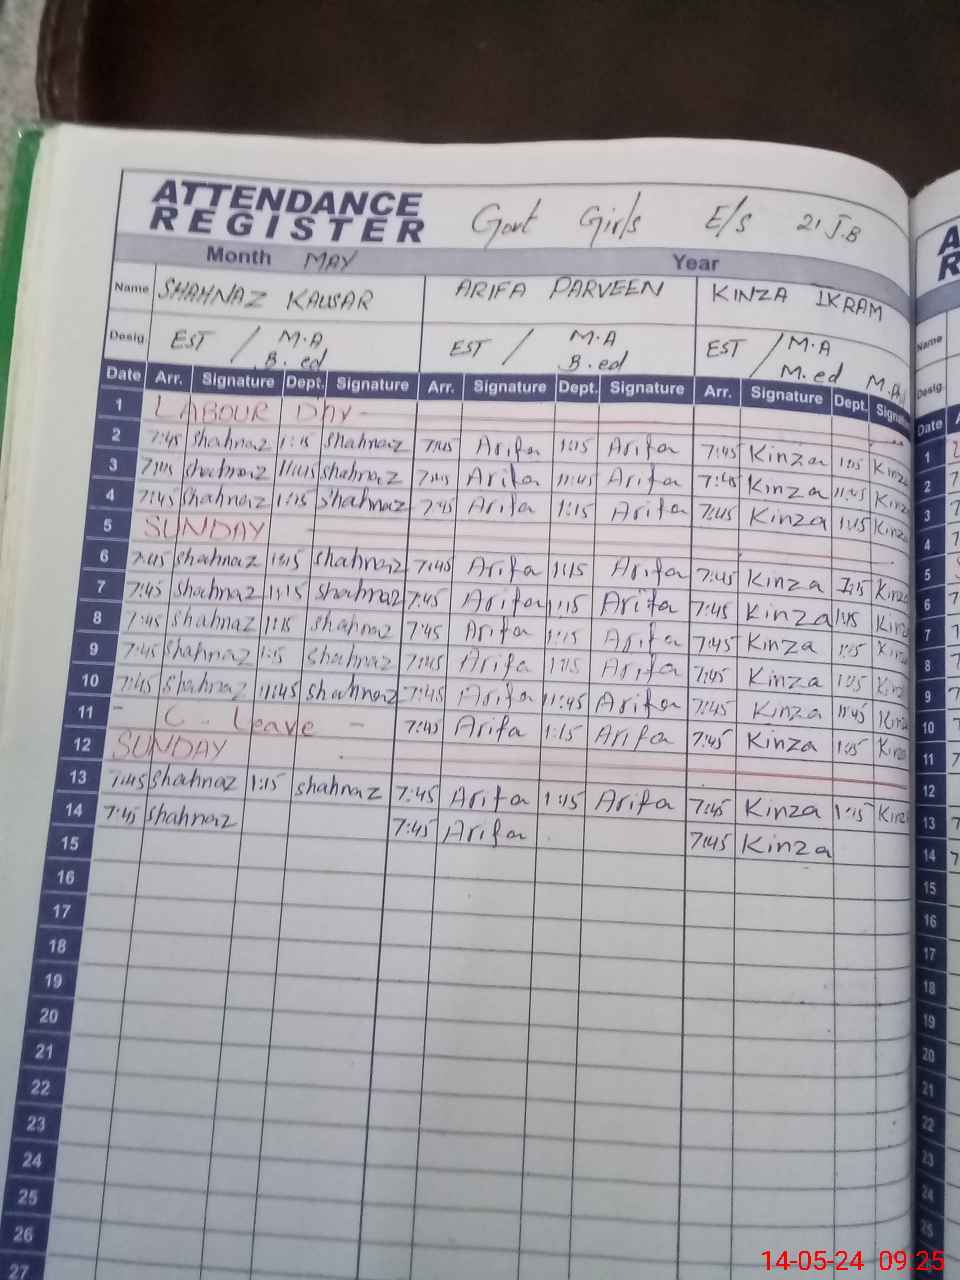 ATTENDANCE REGISTER Govt Girls E/s 21 J.B
Month MAY Year
Name SHAHNAZ KAUSAR ARIFA PARVEEN KINZA IKRAM
Desig. EST / M.A B.ed EST / M.A B.ed EST / M.A M.ed M.A
Date Arr. Signature Dept. Signature Arr. Signature Dept. Signature Arr. Signature Dept. Signature
1 LABOUR DAY
2 7:45 Shahnaz 1:15 Shahnaz 7:45 Arifa 1:15 Arifa 7:45 Kinza 1:15 Kinza
3 7:45 Shahnaz 11:45 Shahnaz 7:45 Arifa 11:45 Arifa 7:45 Kinza 11:45 Kinza
4 7:45 Shahnaz 1:15 Shahnaz 7:45 Arifa 1:15 Arifa 7:45 Kinza 1:15 Kinza
5 SUNDAY
6 7:45 Shahnaz 1:15 Shahnaz 7:45 Arifa 1:15 Arifa 7:45 Kinza 1:15 Kinza
7 7:45 Shahnaz 1:15 Shahnaz 7:45 Arifa 1:15 Arifa 7:45 Kinza 1:15 Kinza
8 7:45 Shahnaz 1:15 Shahnaz 7:45 Arifa 1:15 Arifa 7:45 Kinza 1:15 Kinza
9 7:45 Shahnaz 1:15 Shahnaz 7:45 Arifa 1:15 Arifa 7:45 Kinza 1:15 Kinza
10 7:45 Shahnaz 11:45 Shahnaz 7:45 Arifa 11:45 Arifa 7:45 Kinza 11:45 Kinza
11 - C. Leave - 7:45 Arifa 1:15 Arifa 7:45 Kinza 1:15 Kinza
12 SUNDAY
13 7:45 Shahnaz 1:15 Shahnaz 7:45 Arifa 1:15 Arifa 7:45 Kinza 1:15 Kinza
14 7:45 Shahnaz 7:45 Arifa 7:45 Kinza
15
16
17
18
19
20
21
22
23
24
25
26
27
Name
Desig.
Date
1
2
3
4
5
6
7
8
9
10
11
12
13
14
15
16
17
18
19
20
21
22
23
24
25
14-05-24 09:25